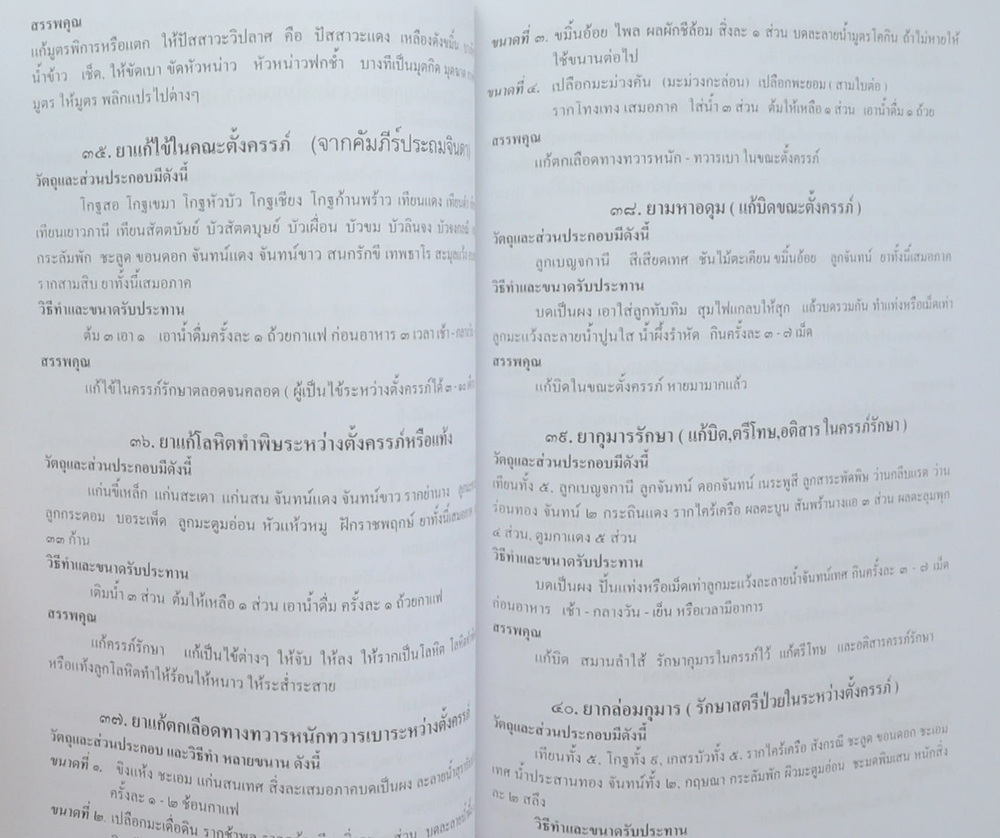 สรรพคุณ
แก้มูตรพิการหรือแตก ให้ปัสสาวะวิปลาศ คือ ปัสสาวะแดง เหลืองดังขมิ้น
น้ำข้าว เช็ด. ให้ขัดเบา ขัดหัวหน่าว หัวหน่าวฟกช้ำ บางทีเป็นมุตกิด มุตฆาต
มูตร ให้มูตร พลิกแปรไปต่างๆ
๓๕. ยาแก้ไข้ในคณะตั้งครรภ์ (จากคัมภีร์ประถมจินดา)
วัตถุและส่วนประกอบมีดังนี้
โกฐสอ โกฐเขมา โกฐหัวบัว โกฐเชียง โกฐก้านพร้าว เทียนแดง
เทียนเยาวภานี เทียนสัตตบัษย์ บัวสัตตบุษย์ บัวเผื่อน บัวขม บัวลินจง บัวจงกลณี
กระลัมพัก ชะลูด ขอนดอก จันทน์แดง จันทน์ขาว สนกรักขี เทพธาโร
รากสามสิบ ยาทั้งนี้เสมอภาค
วิธีทำและขนาดรับประทาน
ต้ม ๓ เอา ๑ เอาน้ำดื่มครั้งละ ๑ ถ้วยกาแฟ ก่อนอาหาร ๓ เวลา เช้า -
สรรพคุณ
แก้ไข้ในครรภ์รักษาตลอดจนคลอด ( ผู้เป็นไข้ระหว่างตั้งครรภ์ได้ ๓ - ๑๐
๓๖. ยาแก้โลหิตทำพิษระหว่างตั้งครรภ์หรือแท้ง
วัตถุและส่วนประกอบมีดังนี้
แก่นขี้เหล็ก แก่นสะเดา แก่นสน จันทน์แดง จันทน์ขาว รากย่านาง
ลูกกระดอม บอระเพ็ด ลูกมะตูมอ่อน หัวแห้วหมู ฝักราชพฤกษ์ ยาทั้งนี้เสมอภาค
๓๓ ก้าน
วิธีทำและขนาดรับประทาน
เติมน้ำ ๓ ส่วน ต้มให้เหลือ ๑ ส่วน เอาน้ำดื่ม ครั้งละ ๑ ถ้วยกาแฟ
สรรพคุณ
แก้ครรภ์รักษา แก้เป็นไข้ต่างๆ ให้จับ ให้ลง ให้รากเป็นโลหิต
หรือแท้งลูกโลหิตทำให้ร้อนให้หนาว ให้ระส่ำระสาย
๓๗. ยาแก้ตกเลือดทางทวารหนักทวารเบาระหว่างตั้งครรภ์
วัตถุและส่วนประกอบ และวิธีทำ หลายขนาน ดังนี้
ขนาดที่ ๑. ขิงแห้ง ชะเอม แก่นสนเทศ สิ่งละเสมอภาคบดเป็นผง ละลายน้ำ
ครั้งละ ๑ - ๒ ช้อนกาแฟ
ขนาดที่ ๒. เปลือกมะเดื่อดิน รากช้าพลู
ขนาดที่ ๓. ขมิ้นอ้อย ไพล ผลผักชีล้อม สิ่งละ ๑ ส่วน บดละลายน้ำมูตรโคกิน ถ้าไม่หายให้
ใช้ขนานต่อไป
ขนาดที่ ๔. เปลือกมะม่วงคัน (มะม่วงกะล่อน) เปลือกพะยอม ( สามใบต่อ )
รากโทงเทง เสมอภาค ใส่น้ำ ๓ ส่วน ต้มให้เหลือ ๑ ส่วน เอาน้ำดื่ม ๑ ถ้วย
สรรพคุณ
แก้ตกเลือดทางทวารหนัก - ทวารเบา ในขณะตั้งครรภ์
๓๘. ยามหาอดุม ( แก้บิดขณะตั้งครรภ์ )
วัตถุและส่วนประกอบมีดังนี้
ลูกเบญจกานี สีเสียดเทศ ชันไม้ตะเคียน ขมิ้นอ้อย ลูกจันทน์ ยาทั้งนี้เสมอภาค
วิธีทำและขนาดรับประทาน
บดเป็นผง เอาใส่ลูกทับทิม สุมไฟแกลบให้สุก แล้วบดรวมกัน ทำแท่งหรือเม็ดเท่า
ลูกมะแว้งละลายน้ำปูนใส น้ำผึ้งรำหัด กินครั้งละ ๓ - ๗ เม็ด
สรรพคุณ
แก้บิดในขณะตั้งครรภ์ หายมามากแล้ว
๓๙. ยากุมารรักษา ( แก้บิด,ตรีโทษ,อติสาร ในครรภ์รักษา )
วัตถุและส่วนประกอบมีดังนี้
เทียนทั้ง ๕. ลูกเบญจกานี ลูกจันทน์ ดอกจันทน์ เนระพูสี ลูกสาระพัดพิษ ว่านกลีบแรด ว่าน
ร่อนทอง จันทน์ ๒ กระถินแดง รากไคร้เครือ ผลตะบูน สันพร้านางแอ ๓ ส่วน ผลตะลุมพุก
๔ ส่วน. ตูมกาแดง ๕ ส่วน
วิธีทำและขนาดรับประทาน
บดเป็นผง ปั้นแท่งหรือเม็ดเท่าลูกมะแว้งละลายน้ำจันทน์เทศ กินครั้งละ ๓ - ๗ เม็ด
ก่อนอาหาร เช้า - กลางวัน - เย็น หรือเวลามีอาการ
สรรพคุณ
แก้บิด สมานลำใส้ รักษากุมารในครรภ์ไว้ แก้ตรีโทษ และอติสารครรภ์รักษา
๔๐. ยากล่อมกุมาร ( รักษาสตรีป่วยในระหว่างตั้งครรภ์ )
วัตถุและส่วนประกอบมีดังนี้
เทียนทั้ง ๕. โกฐทั้ง ๙. เกสรบัวทั้ง ๕. รากไคร้เครือ สังกรณี ชะลูด ขอนดอก ชะเอม
เทศ น้ำประสานทอง จันทน์ทั้ง ๒. กฤษณา กระลัมพัก ผิวมะตูมอ่อน ชะมดพิมเสน หนักสิ่ง
ละ ๒ สลึง
วิธีทำและขนาดรับประทาน